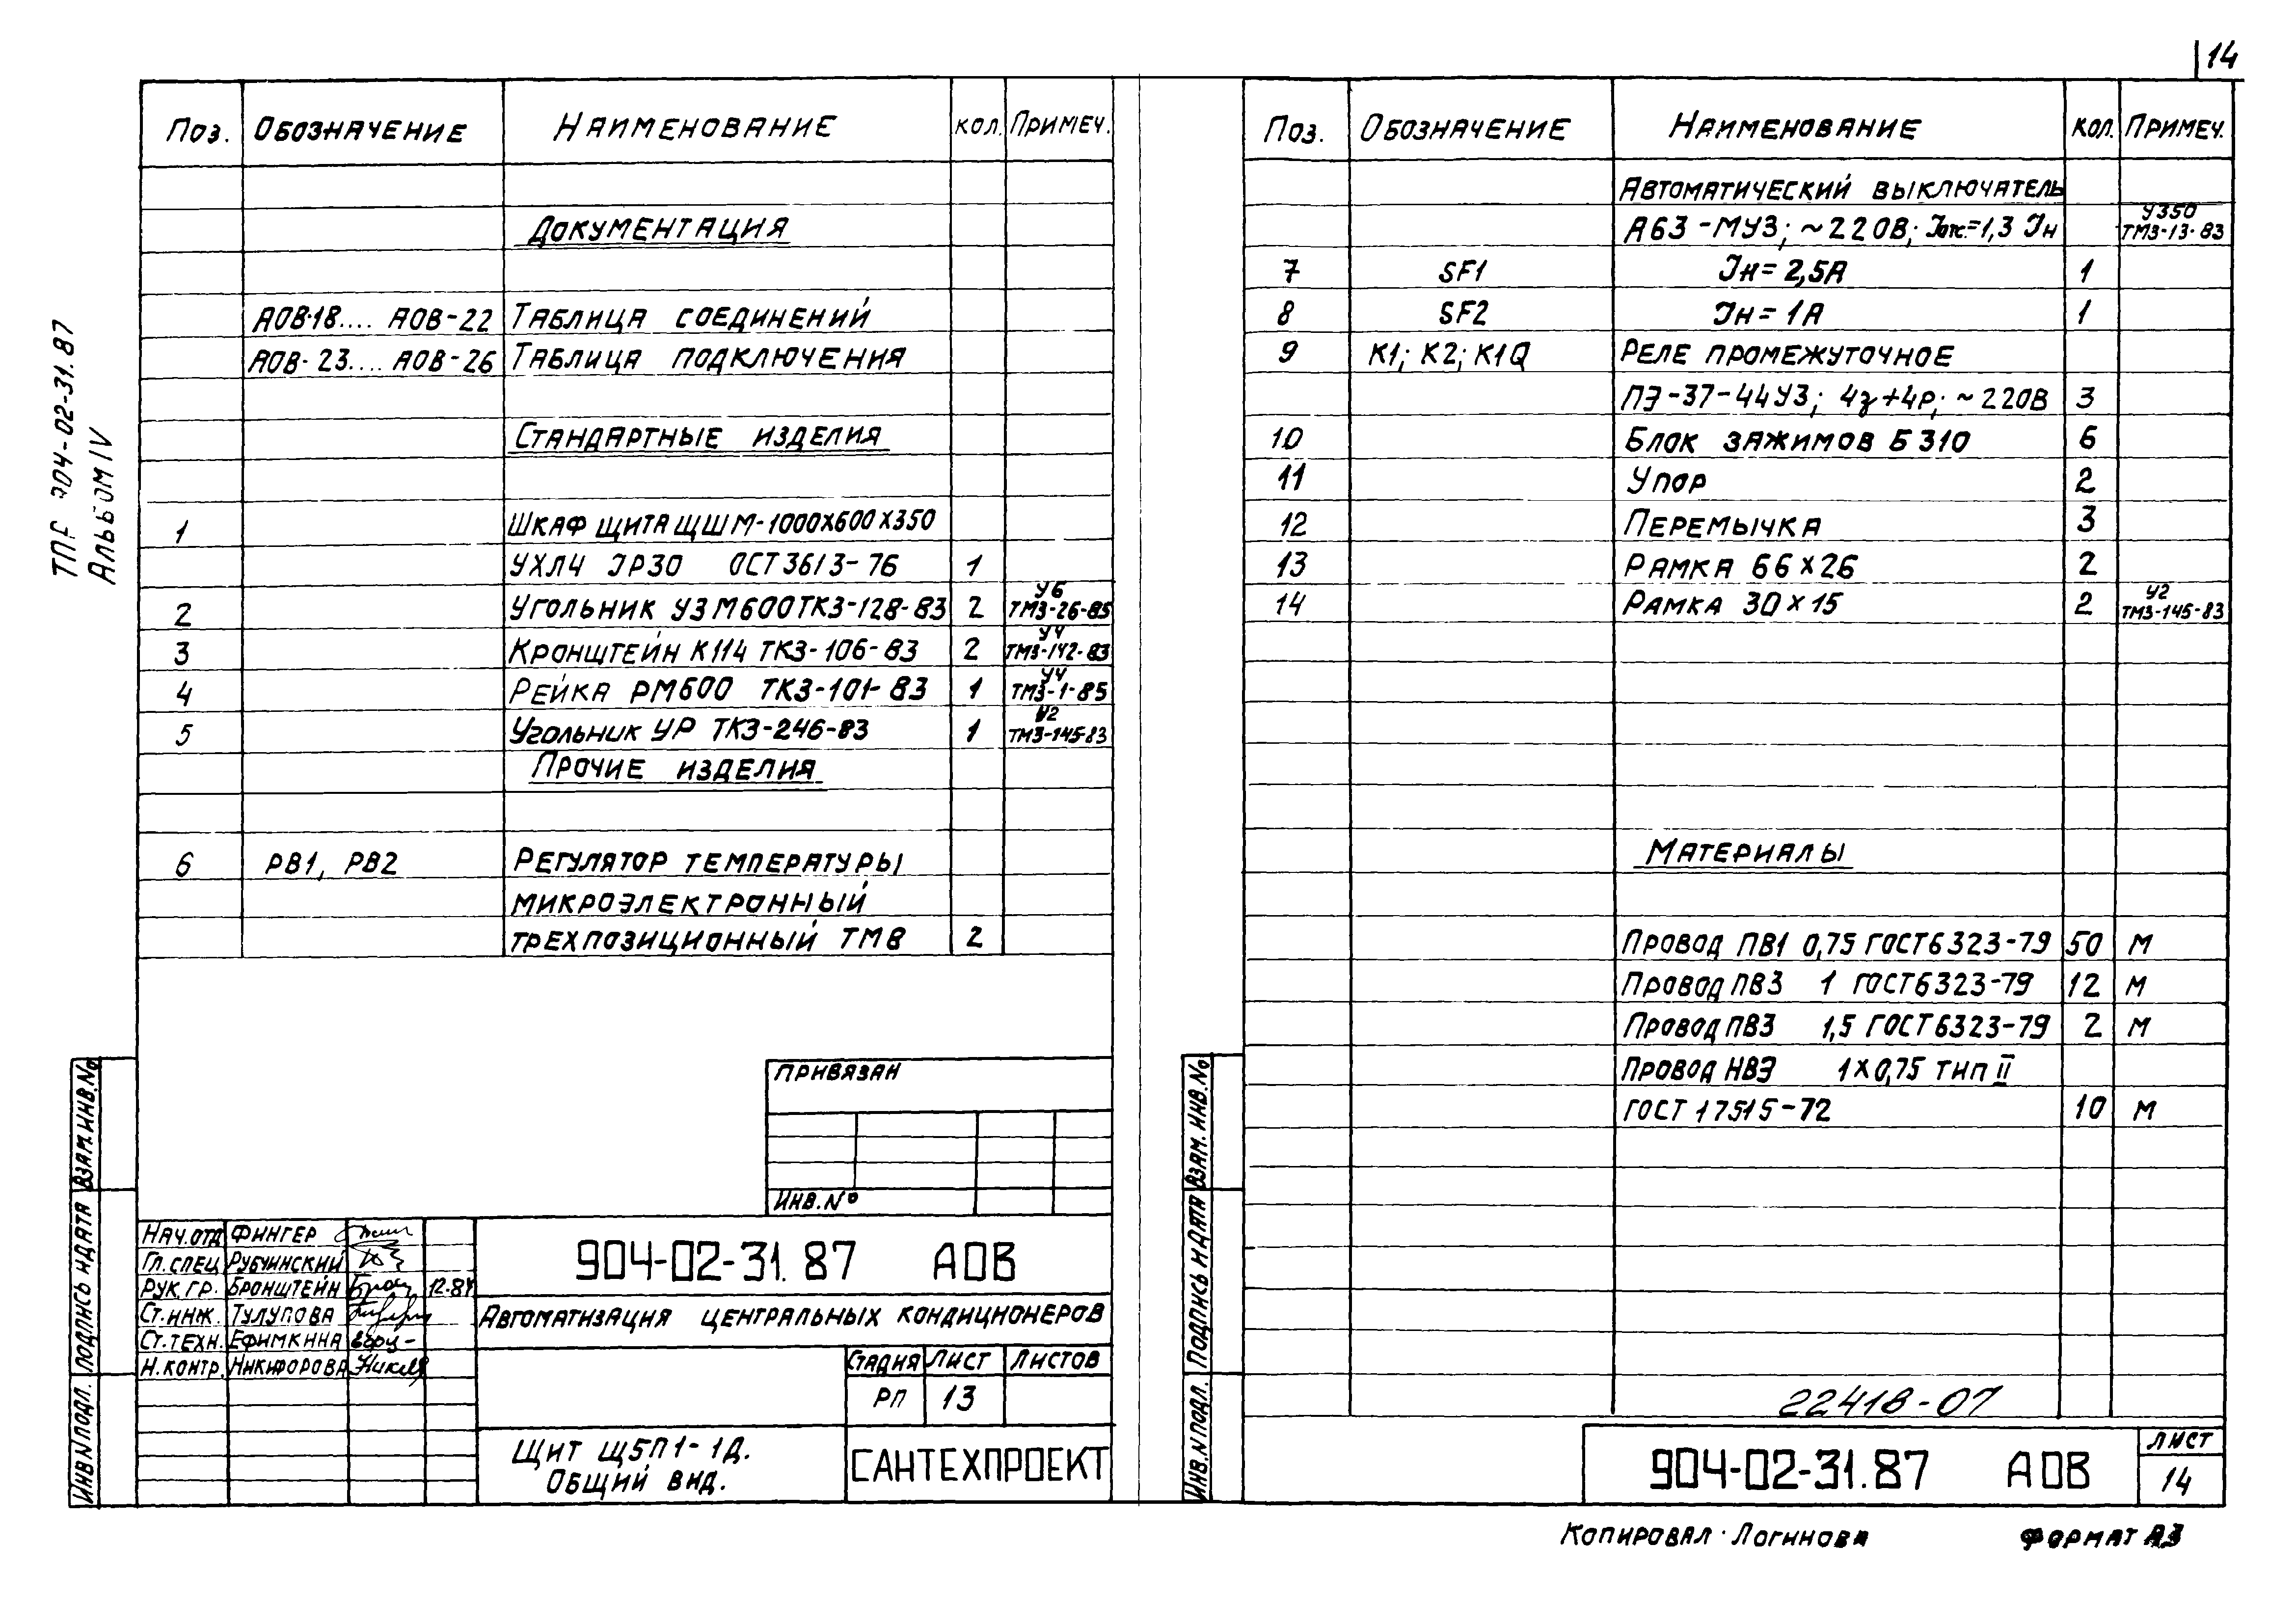 14
ТПР 904-02-31.87
Альбом IV
Поз. Обозначение Наименование Кол. Примеч.
Документация
АОВ-18.... АОВ-22 Таблица соединений
АОВ-23.... АОВ-26 Таблица подключения
Стандартные изделия
1 Шкаф щита ЩШМ-1000х600х350
УХЛ4 IP30 ОСТ 3613-76 1
2 Угольник УЗМ600ТК3-128-83 2 У6 ТМ3-26-85
3 Кронштейн К114 ТК3-106-83 2 У4 ТМ3-142-83
4 Рейка РМ600 ТК3-101-83 1 У4 ТМ3-1-85
5 Угольник УР ТК3-246-83 1 У2 ТМ3-145-83
Прочие изделия
6 РВ1, РВ2 Регулятор температуры
микроэлектронный
трехпозиционный ТМ8 2
Привязан
Инв.№
Нач.отд Фингер
Гл.спец Рубчинский
Рук.гр. Бронштейн 12.87
Ст.инж. Тулупова
Ст.техн. Ефимкина
Н.контр. Никифорова
904-02-31.87 АОВ
Автоматизация центральных кондиционеров
Стадия Лист Листов
РП 13
Щит Щ5П1-1Д.
Общий вид.
САНТЕХПРОЕКТ
Инв.N подл. Подпись и дата Взам. инв.№
Поз. Обозначение Наименование Кол. Примеч.
Автоматический выключатель
А63-МУ3; ~220В; Iотс.=1,3 Iн У350 ТМ3-13-83
7 SF1 Iн=2,5А 1
8 SF2 Iн=1А 1
9 К1; К2; К1Q Реле промежуточное
ПЭ-37-44У3; 4з+4р; ~220В 3
10 Блок зажимов Б310 6
11 Упор 2
12 Перемычка 3
13 Рамка 66х26 2
14 Рамка 30х15 2 У2 ТМ3-145-83
Материалы
Провод ПВ1 0,75 ГОСТ 6323-79 50 м
Провод ПВ3 1 ГОСТ 6323-79 12 м
Провод ПВ3 1,5 ГОСТ 6323-79 2 м
Провод НВЭ 1х0,75 тип II
ГОСТ 17515-72 10 м
22418-07
Инв.N подл. Подпись и дата Взам. инв.№
904-02-31.87 АОВ
Лист
14
Копировал Логинова Формат А3